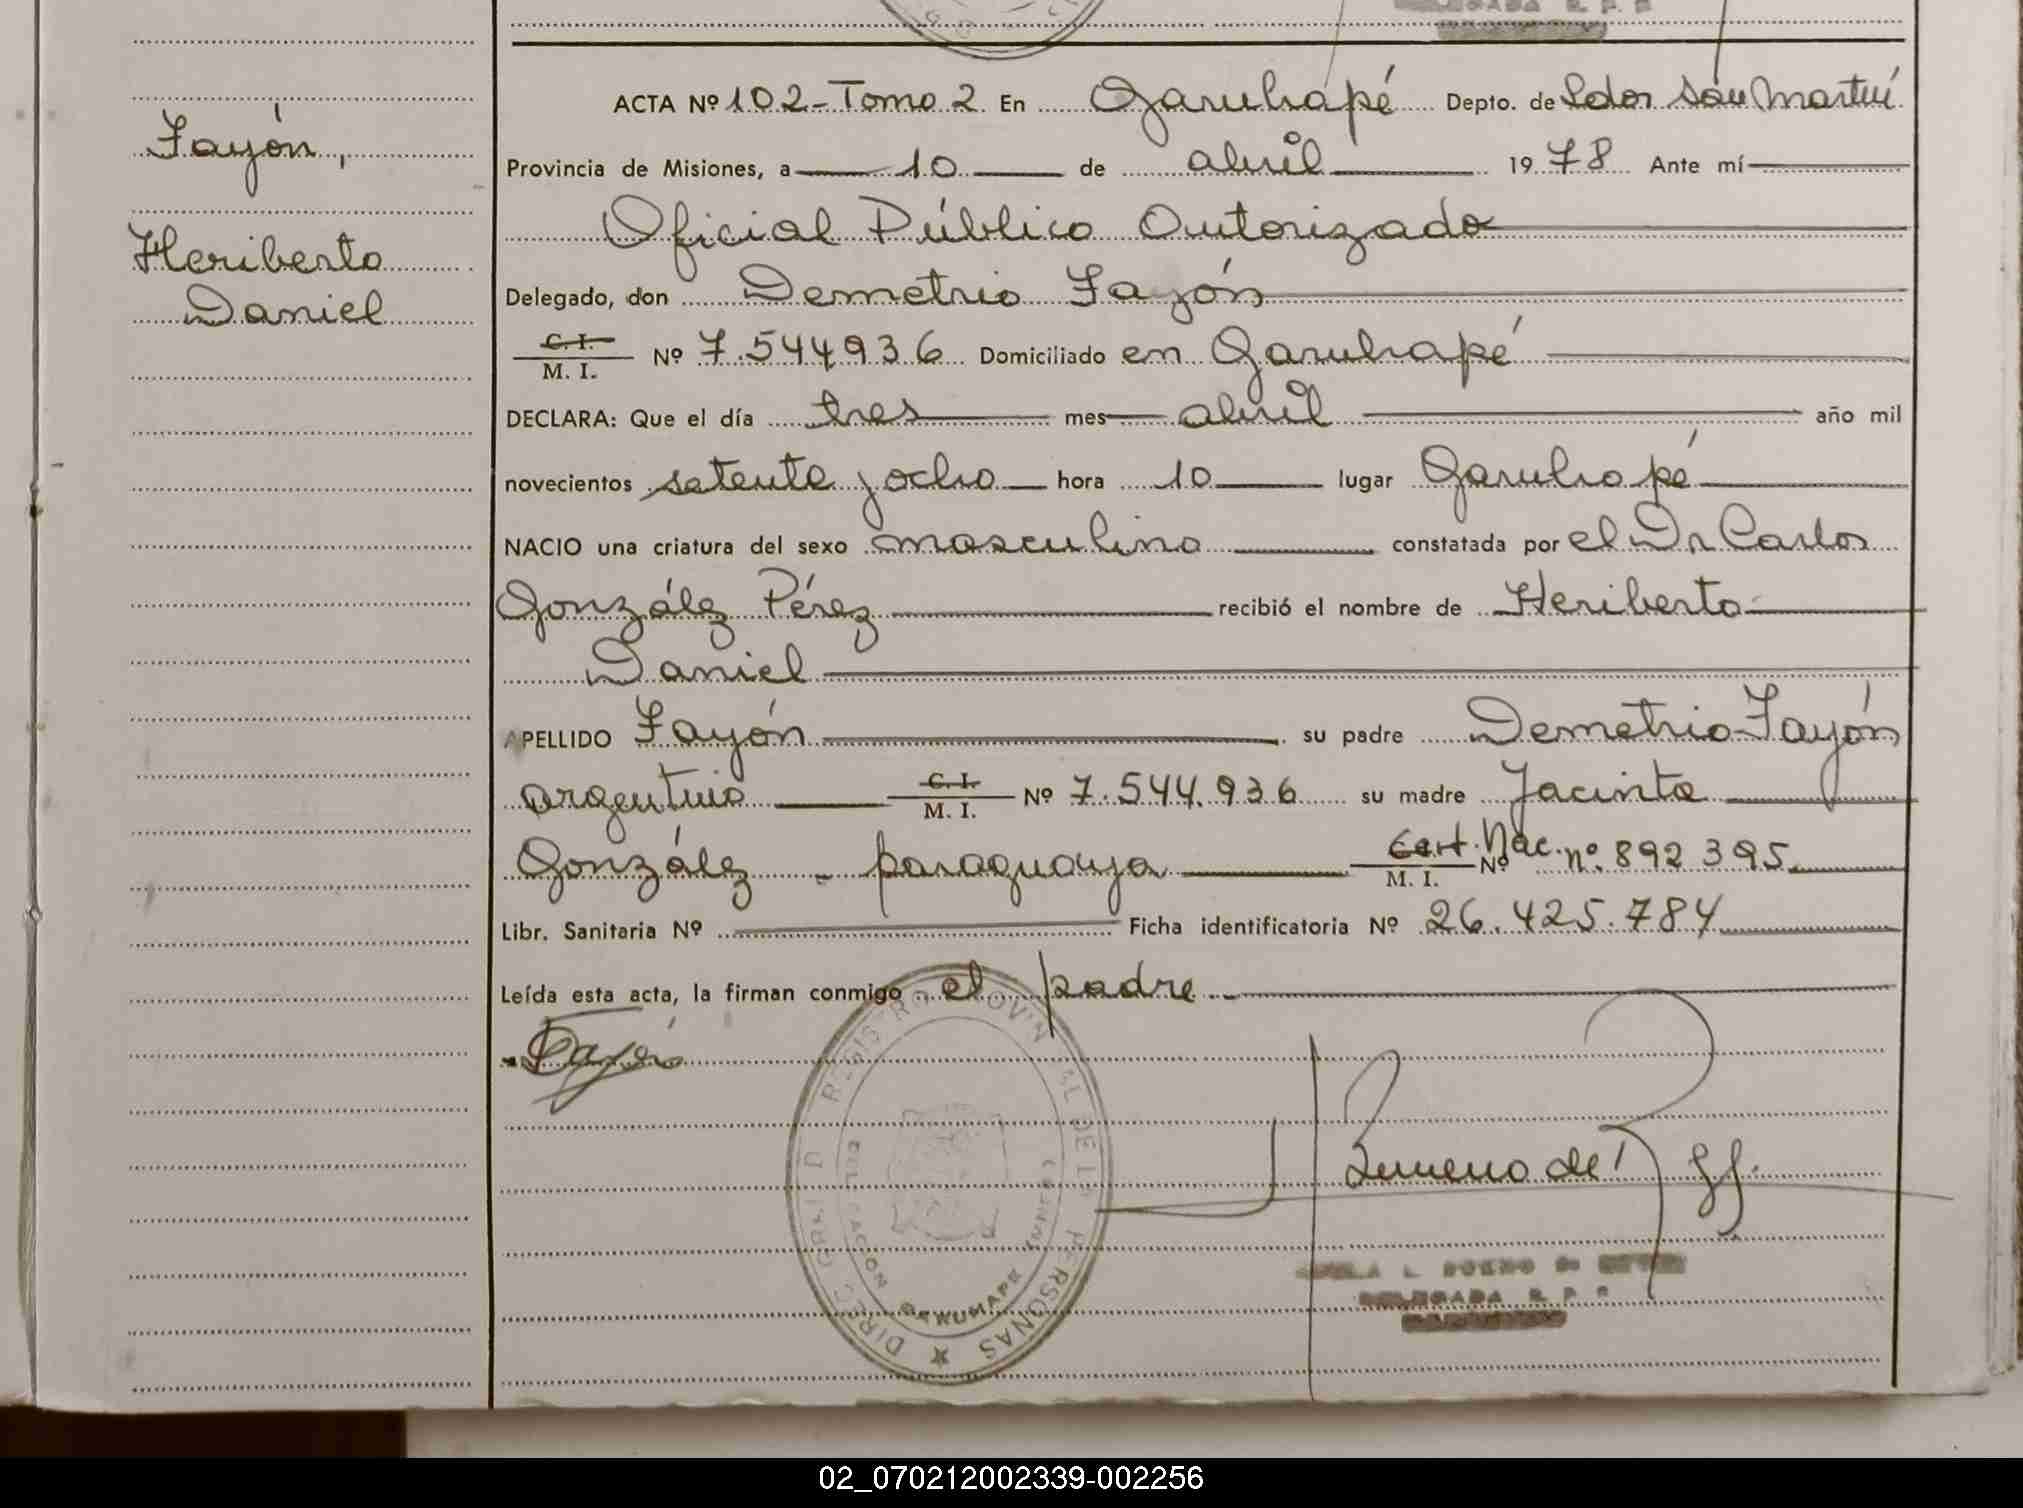 ACTA Nº 102 - Tomo 2 En Garuhapé Depto. de Ldor San Martín
Fayón,
Provincia de Misiones, a 10 de abril 1978 Ante mí
Oficial Público Autorizado
Heriberto
Daniel
Delegado, don Demetrio Fayón
C. I. M. I. Nº 7.544936 Domiciliado en Garuhapé
DECLARA: Que el día tres mes abril año mil
novecientos setenta y ocho hora 10 lugar Garuhapé
NACIO una criatura del sexo masculino constatada por el Dr Carlos
González Pérez recibió el nombre de Heriberto
Daniel
APELLIDO Fayón su padre Demetrio Fayón
argentino C. I. M. I. Nº 7.544.936 su madre Jacinta
González - paraguaya Cert. Nac. M. I. Nº nº 892395
Libr. Sanitaria Nº Ficha identificatoria Nº 26.425.784
Leída esta acta, la firman conmigo el padre
Fayón
DELEGADA R. P. P.
GARUHAPE
02_070212002339-002256